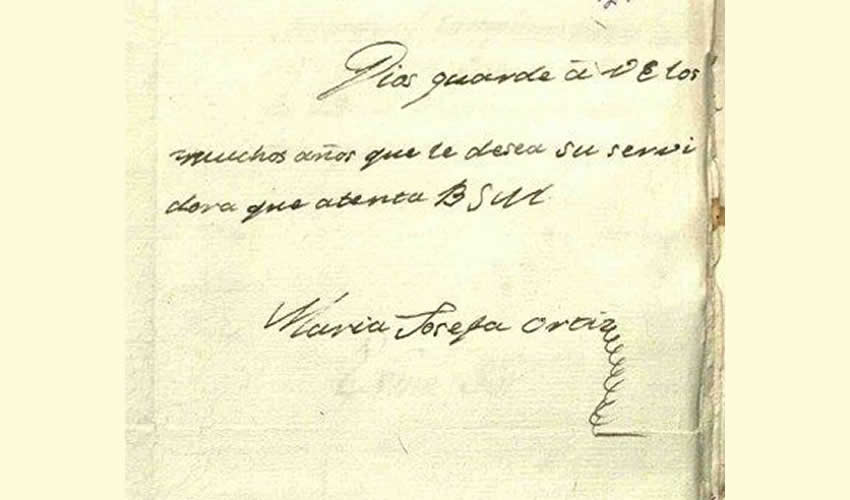 Dios guarde a V E los
muchos años que le desea su servi
dora que atenta B S M
Maria Josefa Ortiz